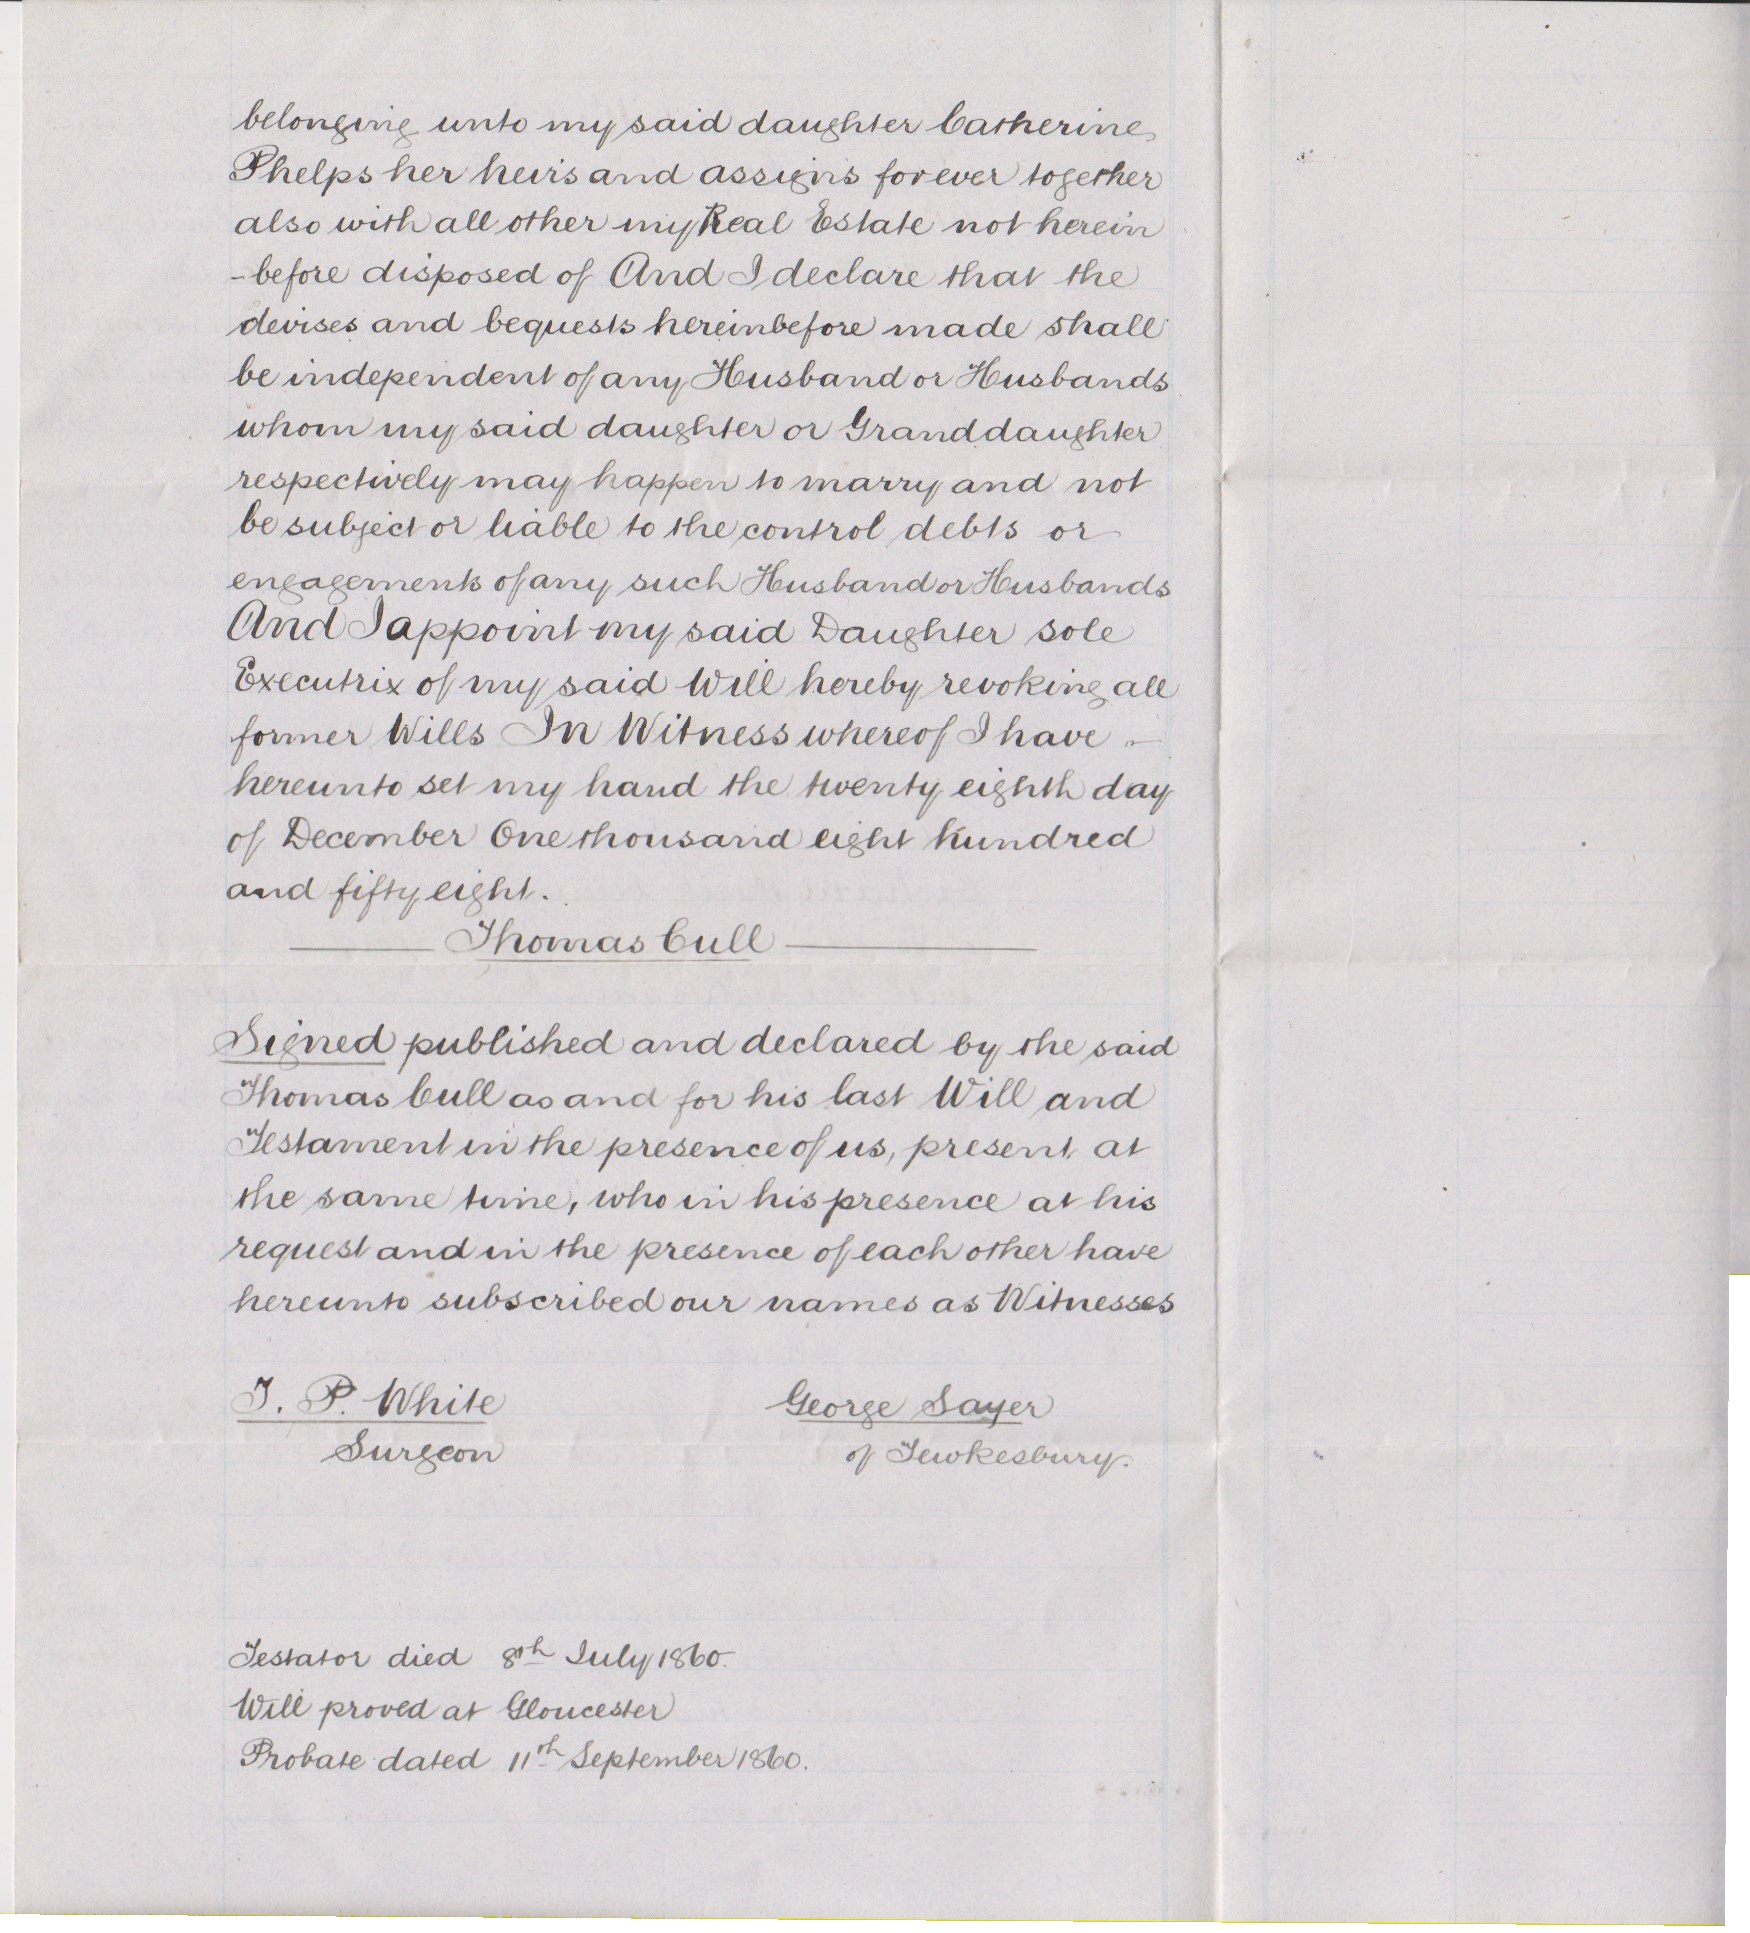 belonging unto my said daughter Catherine
Phelps her heirs and assigns for ever together
also with all other my Real Estate not herein
-before disposed of And I declare that the
devises and bequests hereinbefore made shall
be independent of any Husband or Husbands
whom my said daughter or Granddaughter
respectively may happen to marry and not
be subject or liable to the control debts or
engagements of any such Husband or Husbands
And I appoint my said Daughter sole
Executrix of my said Will hereby revoking all
former Wills In Witness whereof I have
hereunto set my hand the twenty eighth day
of December One thousand eight hundred
and fifty eight.
Thomas Cull
Signed published and declared by the said
Thomas Cull as and for his last Will and
Testament in the presence of us, present at
the same time, who in his presence at his
request and in the presence of each other have
hereunto subscribed our names as Witnesses
T. P. White George Sayer
Surgeon of Tewkesbury.
Testator died 8th July 1860.
Will proved at Gloucester
Probate dated 11th September 1860.